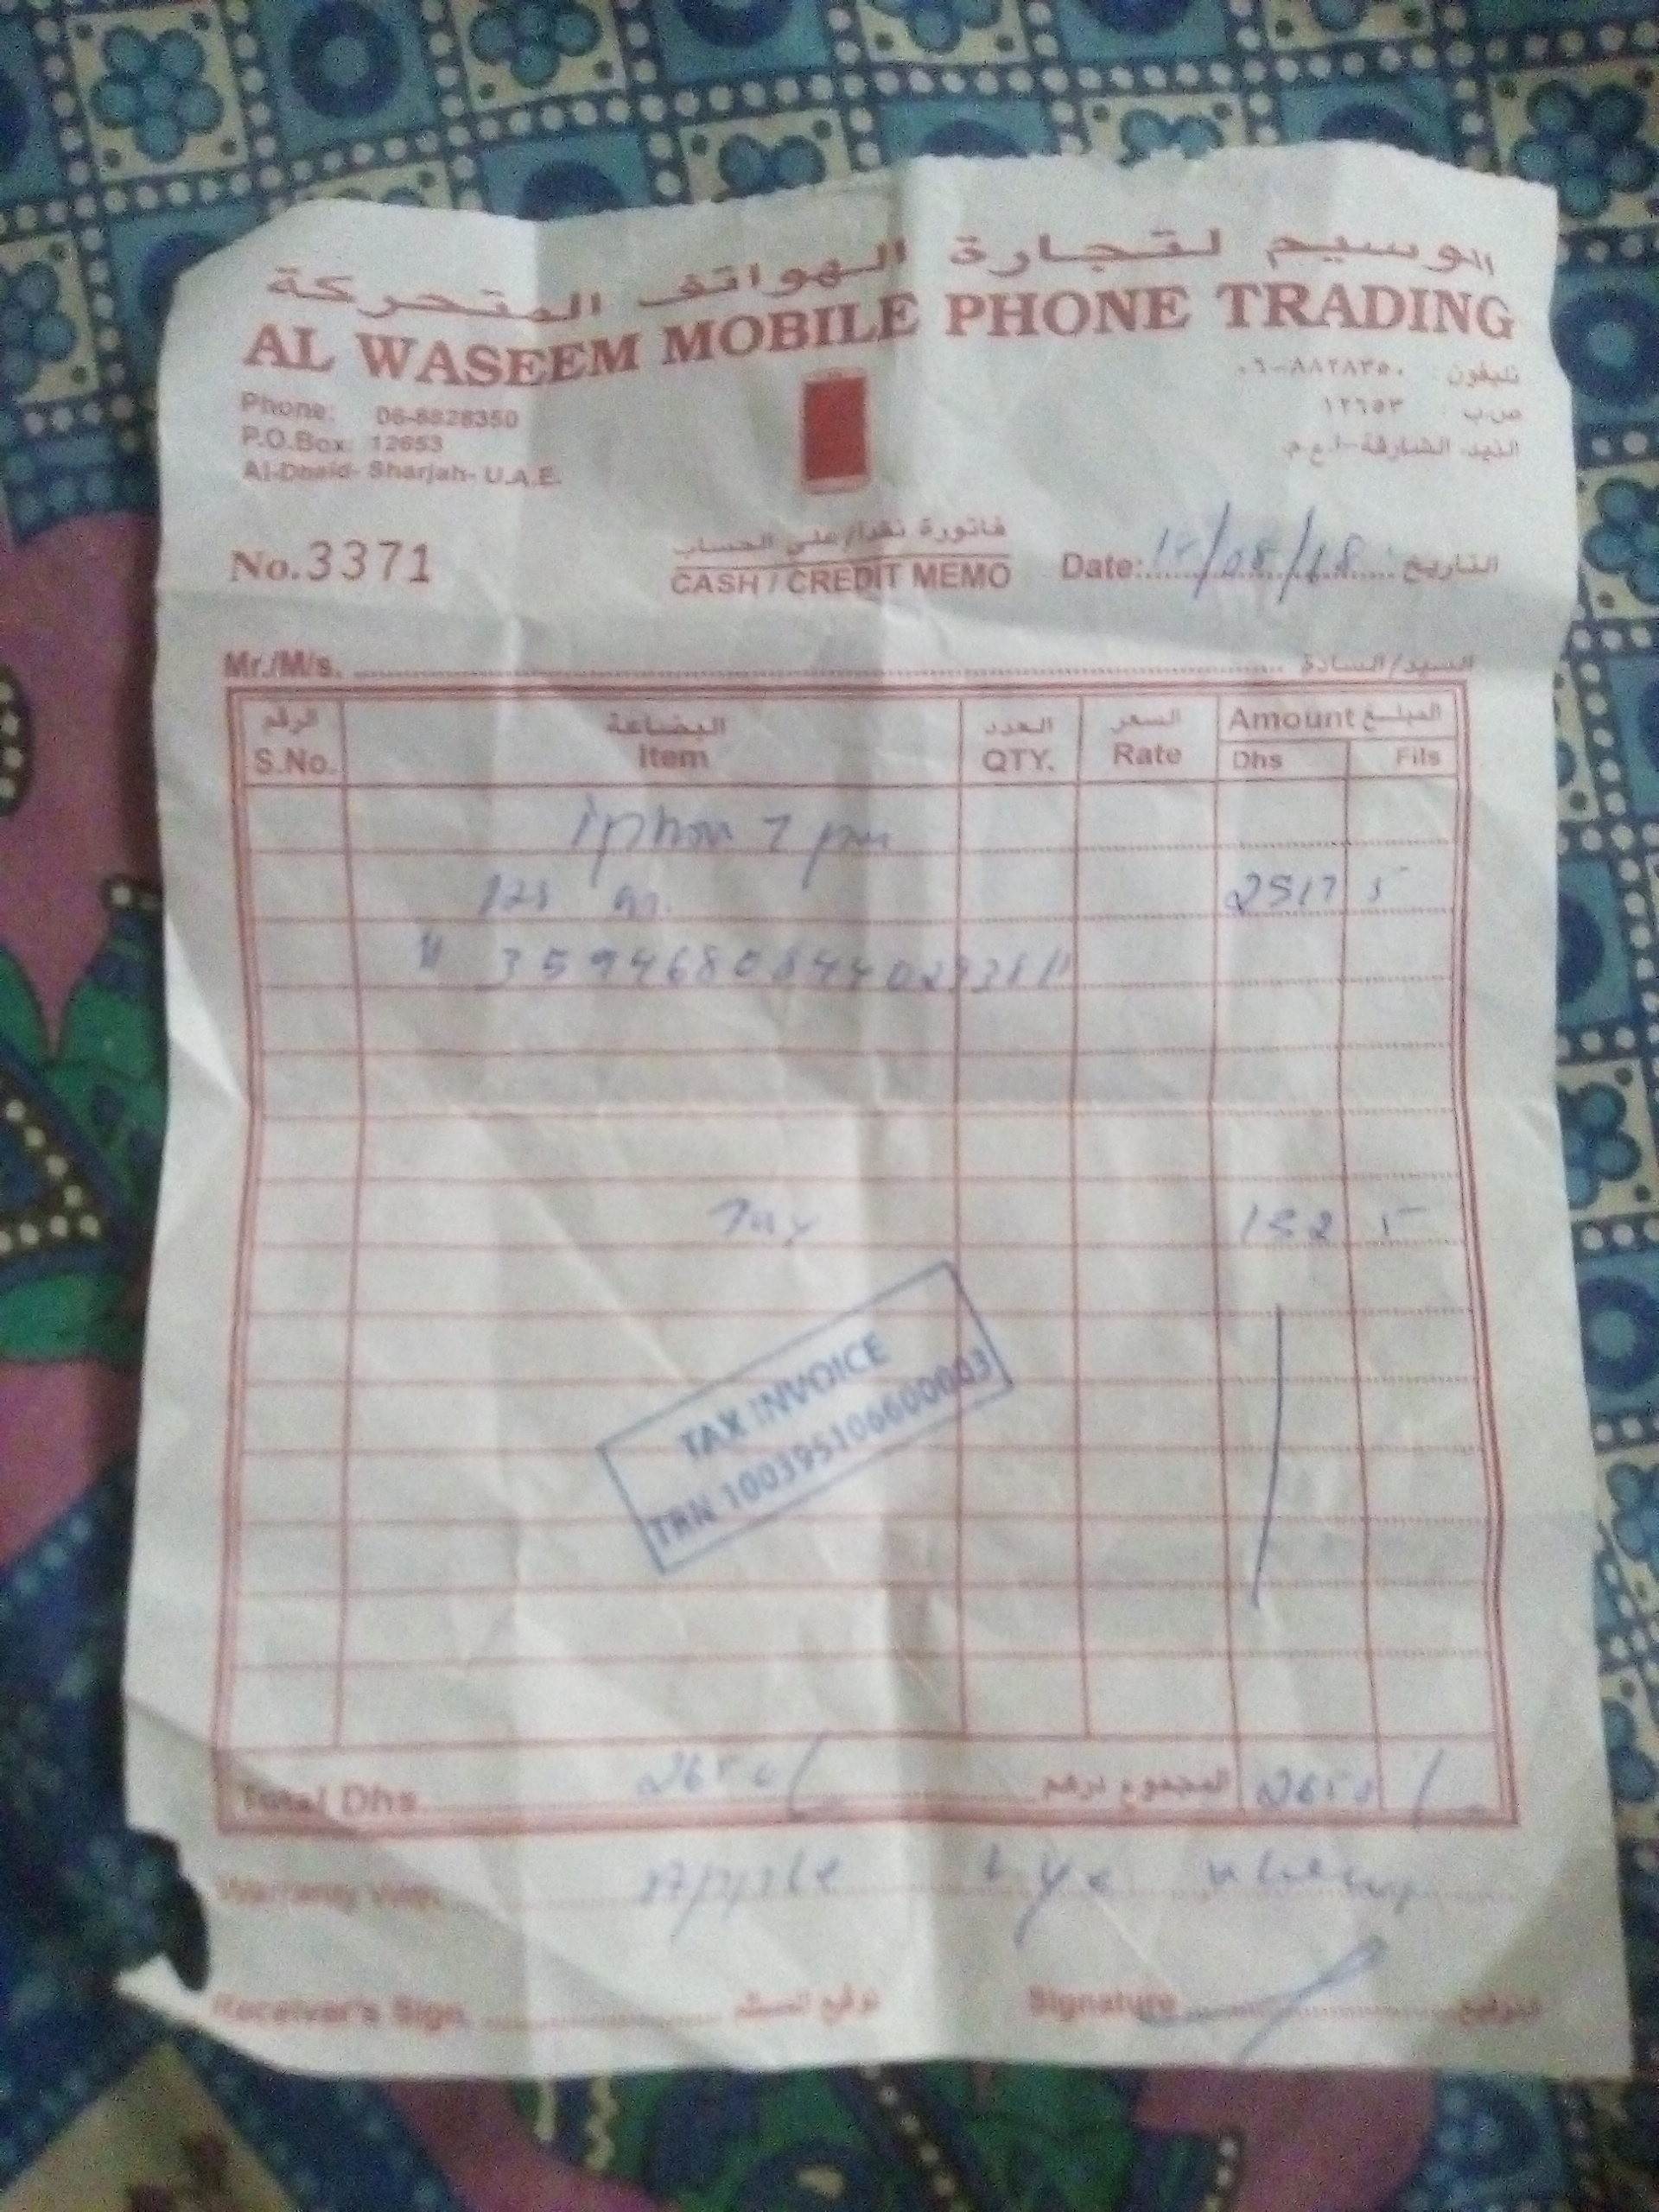 الوسيم لتجارة الهواتف المتحركة
AL WASEEM MOBILE PHONE TRADING
Phone: 06-8828350
P.O.Box: 12653
Al-Dhaid- Sharjah- U.A.E.
تليفون: ٨٨٢٨٣٥٠-٠٦
ص.ب: ١٢٦٥٣
الذيد، الشارقة-ا.ع.م
No. 3371
فاتورة نقدا/على الحساب
CASH / CREDIT MEMO
Date: /08/18 التاريخ
Mr./M/s. السيد/السادة
الرقم البضاعة العدد السعر Amount المبلغ
S.No. Item QTY. Rate Dhs Fils
iphon 7
2517 5
Tax 132 5
TAX INVOICE
TRN 100395106600003
Total Dhs 2650/ المجموع درهم 2650 /
Warranty With Apple 1 ye
Receiver's Sign. توقيع المستلم Signature التوقيع